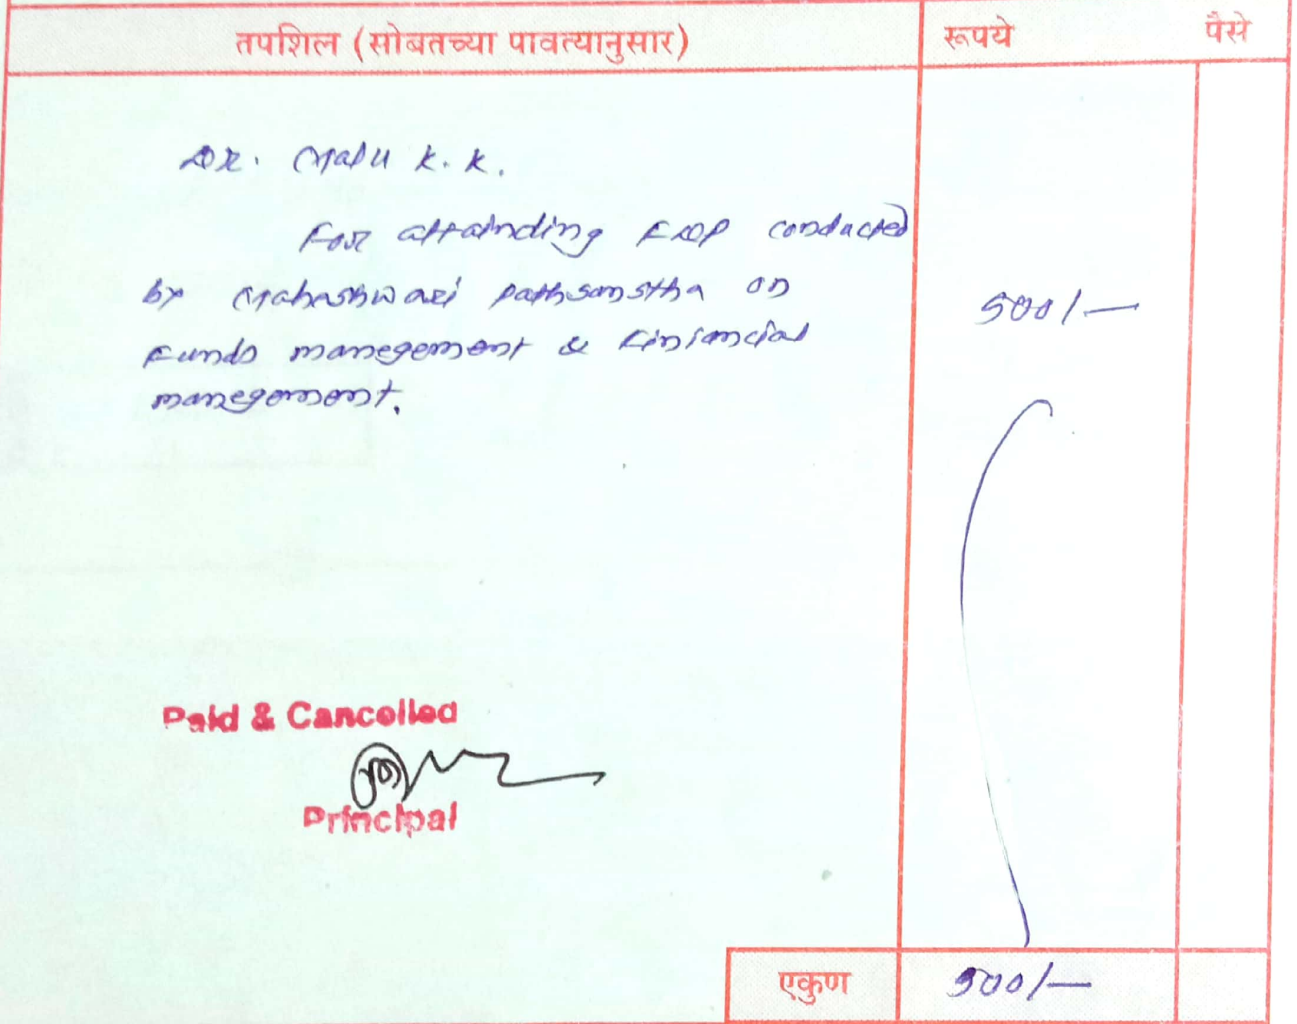 तपशिल (सोबतच्या पावत्यानुसार) रूपये पैसे
Dr. Malu K. K.
For attainding FDP conducted
by Maheshwari pathsanstha on 500/-
Funds manegement & Finiancial
manegement.
Paid & Cancelled
Principal
एकुण 500/-